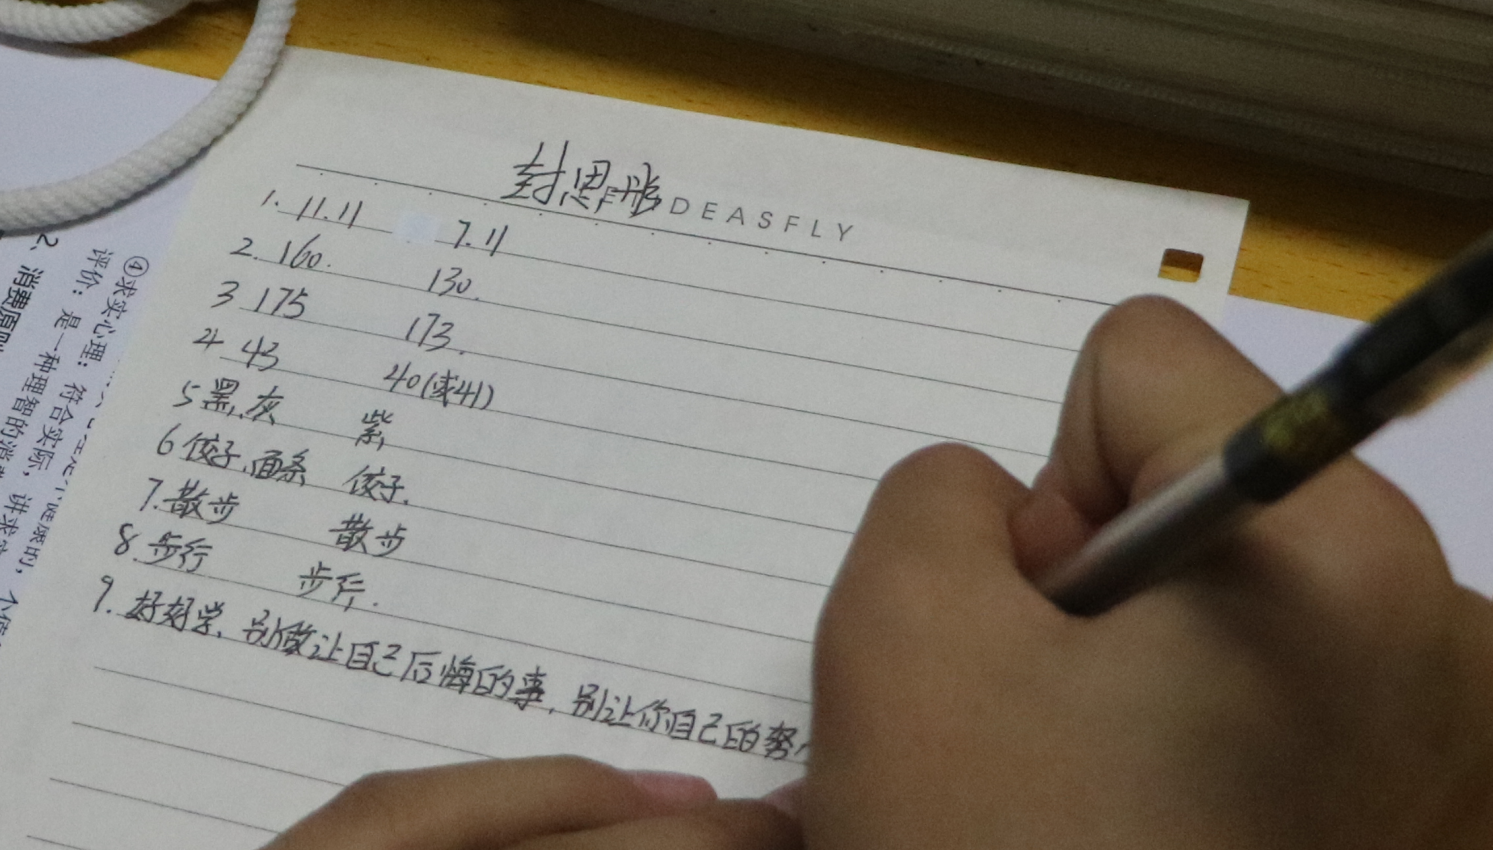 封思彤 DEASFLY
1. 11.11 7.11
2. 160. 130.
3 175 173.
4 43 40(或41)
5 黑,灰 紫,
6 饺子,面条 饺子.
7. 散步 散步
8. 步行 步行.
9. 好好学,别做让自己后悔的事,别让你自己的努
④求实心理:符合实际,讲求实
评价:是一种理智的消
2. 消费原则